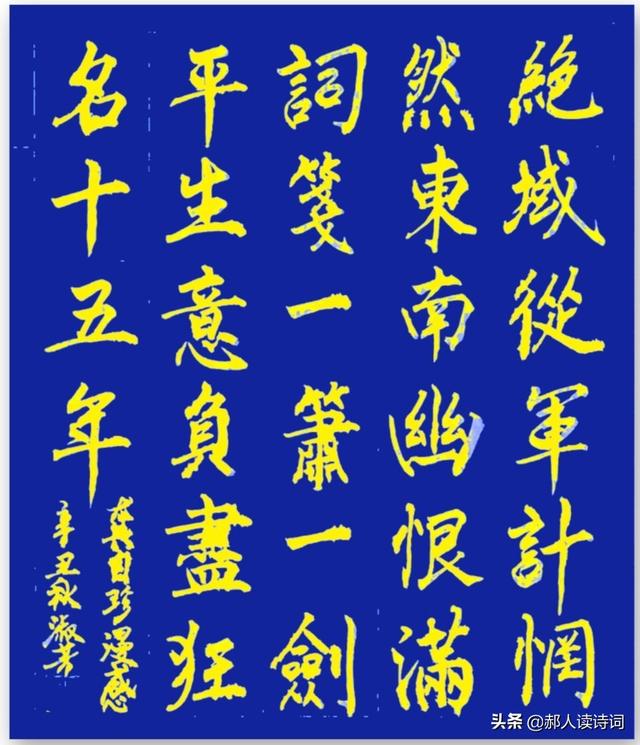 絶域從軍計惘
然東南幽恨滿
詞箋一簫一劍
平生意負盡狂
名十五年
龔自珍漫感
辛丑秋淑芳
头条 @郝人读诗词